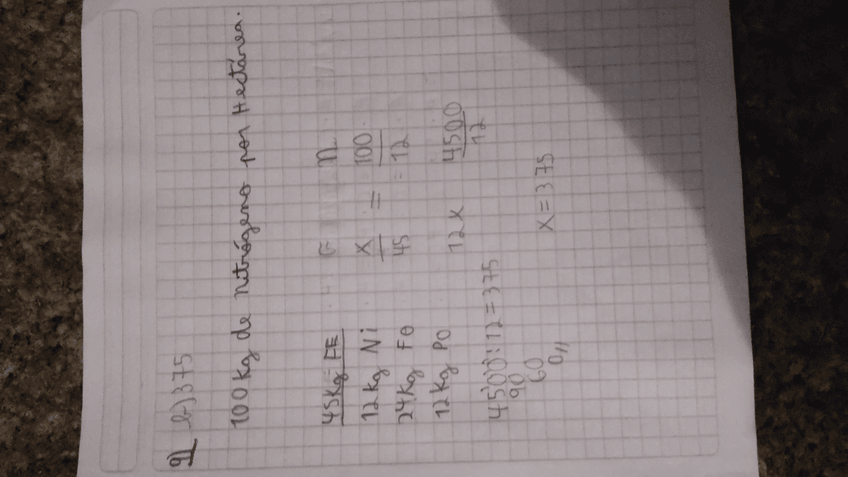 9) b) 375
100 kg de nitrógeno por Hectárea.
45 kg FE
12 kg Ni
24 kg Fo
12 kg PO
F n
x/45 = 100/12
12 x 4500/12
4500:12 = 375
90
60
0,,
x = 375